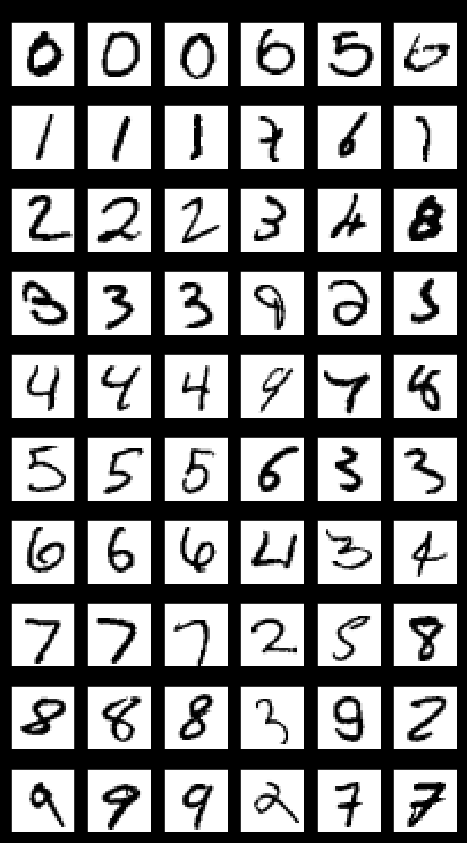 0 0 0 6 5 6
1 1 1 7 6 7
2 2 2 3 4 8
3 3 3 9 2 5
4 4 4 9 7 8
5 5 5 6 3 3
6 6 6 4 3 4
7 7 7 2 5 8
8 8 8 3 9 2
9 9 9 2 7 7